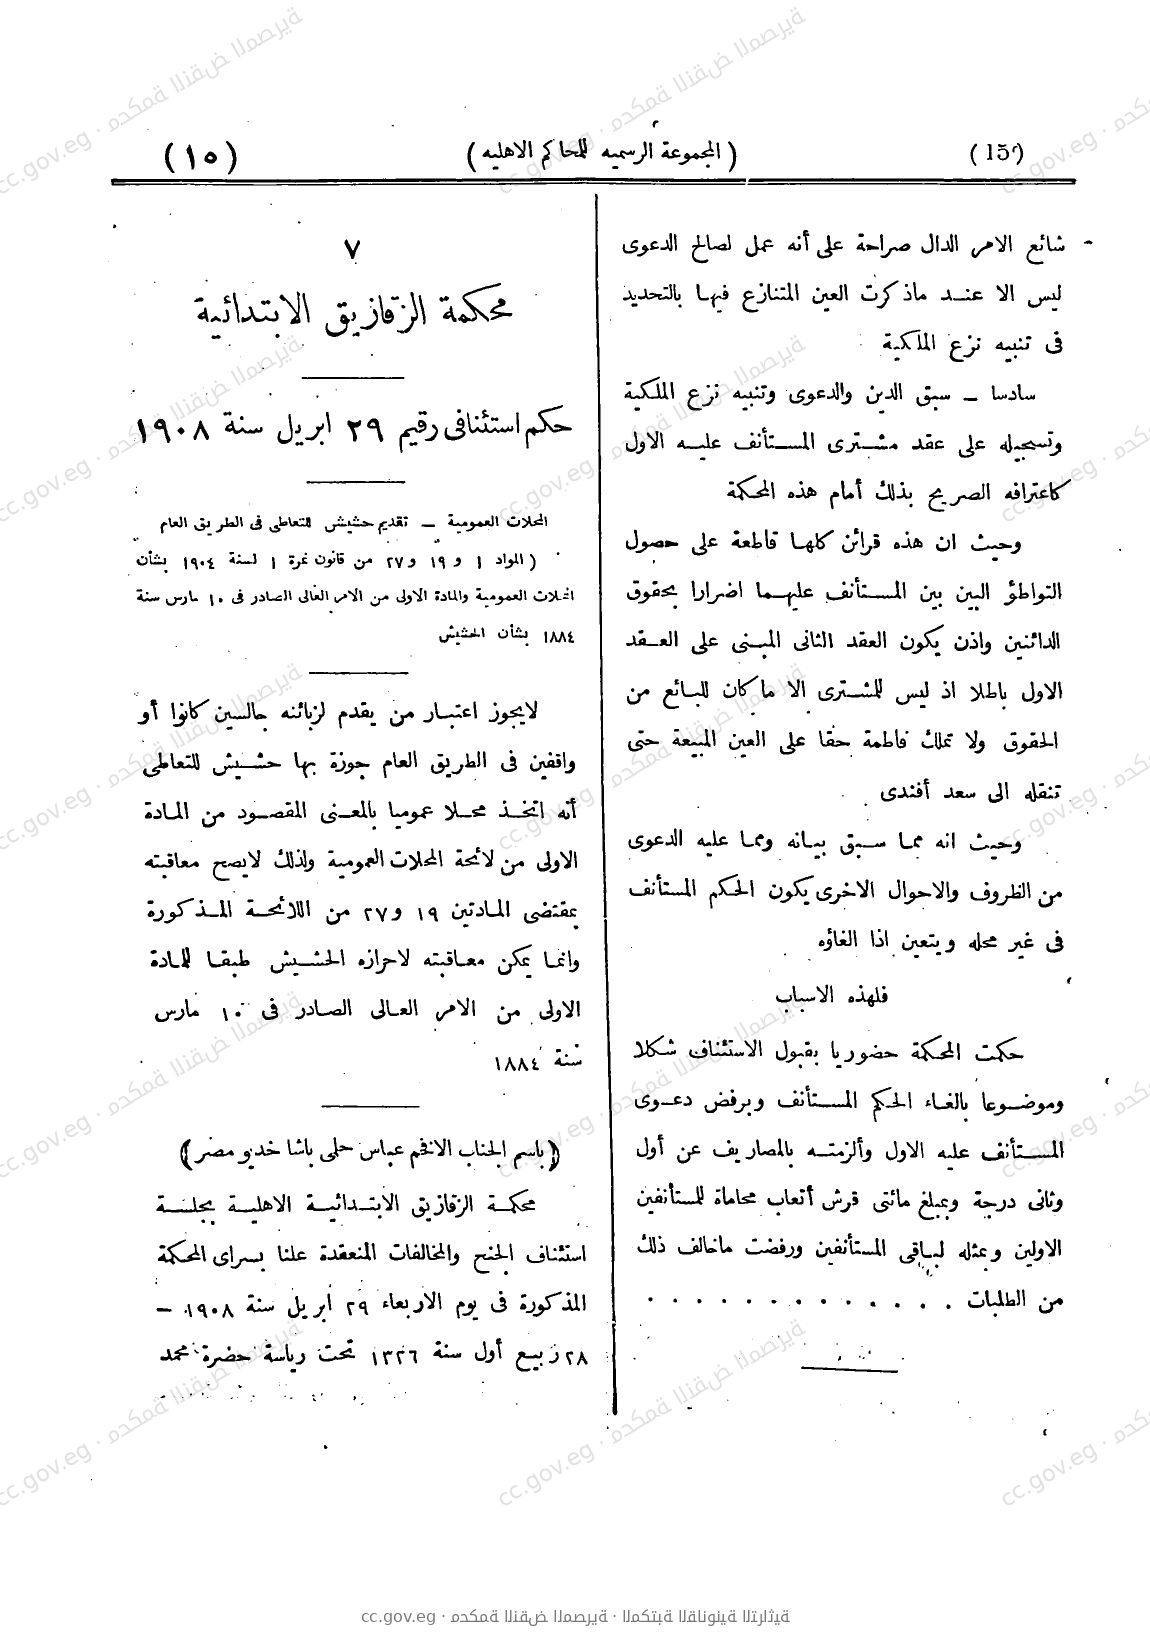 (15) (المجموعة الرسميه للمحاكم الاهليه) (١٥)
شائع الامر الدال صراحة على أنه عمل لصالح الدعوى
ليس الا عند ماذكرت العين المتنازع فيها بالتحديد
فى تنبيه نزع الملكية
سادسا ــ سبق الدين والدعوى وتنبيه نزع الملكية
وتسجيله على عقد مشترى المستأنف عليه الاول
كاعترافه الصريح بذلك أمام هذه المحكمة
وحيث ان هذه قرائن كلها قاطعة على حصول
التواطؤ البين بين المستأنف عليهما اضرارا بحقوق
الدائنين واذن يكون العقد الثانى المبنى على العقد
الاول باطلا اذ ليس للمشترى الا ماكان للبائع من
الحقوق ولا تملك فاطمة حقا على العين المبيعة حتى
تنقله الى سعد أفندى
وحيث انه مما سبق بيانه ومما عليه الدعوى
من الظروف والاحوال الاخرى يكون الحكم المستأنف
فى غير محله ويتعين اذا الغاؤه
فلهذه الاسباب
حكمت المحكمة حضوريا بقبول الاستئناف شكلا
وموضوعا بالغاء الحكم المستأنف وبرفض دعوى
المستأنف عليه الاول وألزمته بالمصاريف عن أول
وثانى درجة وبمبلغ مائتى قرش أتعاب محاماة للمستأنفين
الاولين وبمثله لباقى المستأنفين ورفضت ماخالف ذلك
من الطلبات . . . . . . . . . . . . .
٧
محكمة الزقازيق الابتدائية
حكم استئنافى رقيم ٢٩ ابريل سنة ١٩٠٨
المحلات العمومية ــ تقديم حشيش للتعاطى فى الطريق العام
(المواد ١ و ١٩ و٢٧ من قانون نمرة ١ لسنة ١٩٠٤ بشأن
المحلات العمومية والمادة الاولى من الامر العالى الصادر فى ١٠ مارس سنة
١٨٨٤ بشأن الحشيش
لايجوز اعتبار من يقدم لزبائنه جالسين كانوا أو
واقفين فى الطريق العام جوزة بها حشيش للتعاطى
أنه اتخذ محلا عموميا بالمعنى المقصود من المادة
الاولى من لائحة المحلات العمومية ولذلك لايصح معاقبته
بمقتضى المادتين ١٩ و٢٧ من اللائحة المذكورة
وانما يمكن معاقبته لاحرازه الحشيش طبقا للمادة
الاولى من الامر العالى الصادر فى ١٠ مارس
سنة ١٨٨٤
(باسم الجناب الافخم عباس حلمى باشا خديو مصر)
محكمة الزقازيق الابتدائية الاهلية بجلسة
استئناف الجنح والمخالفات المنعقدة علنا بسراى المحكمة
المذكورة فى يوم الاربعاء ٢٩ ابريل سنة ١٩٠٨ ــ
٢٨ ربيع أول سنة ١٣٢٦ تحت رياسة حضرة محمد
cc.gov.eg · محكمة النقض المصرية · المكتبة القانونية التراثية